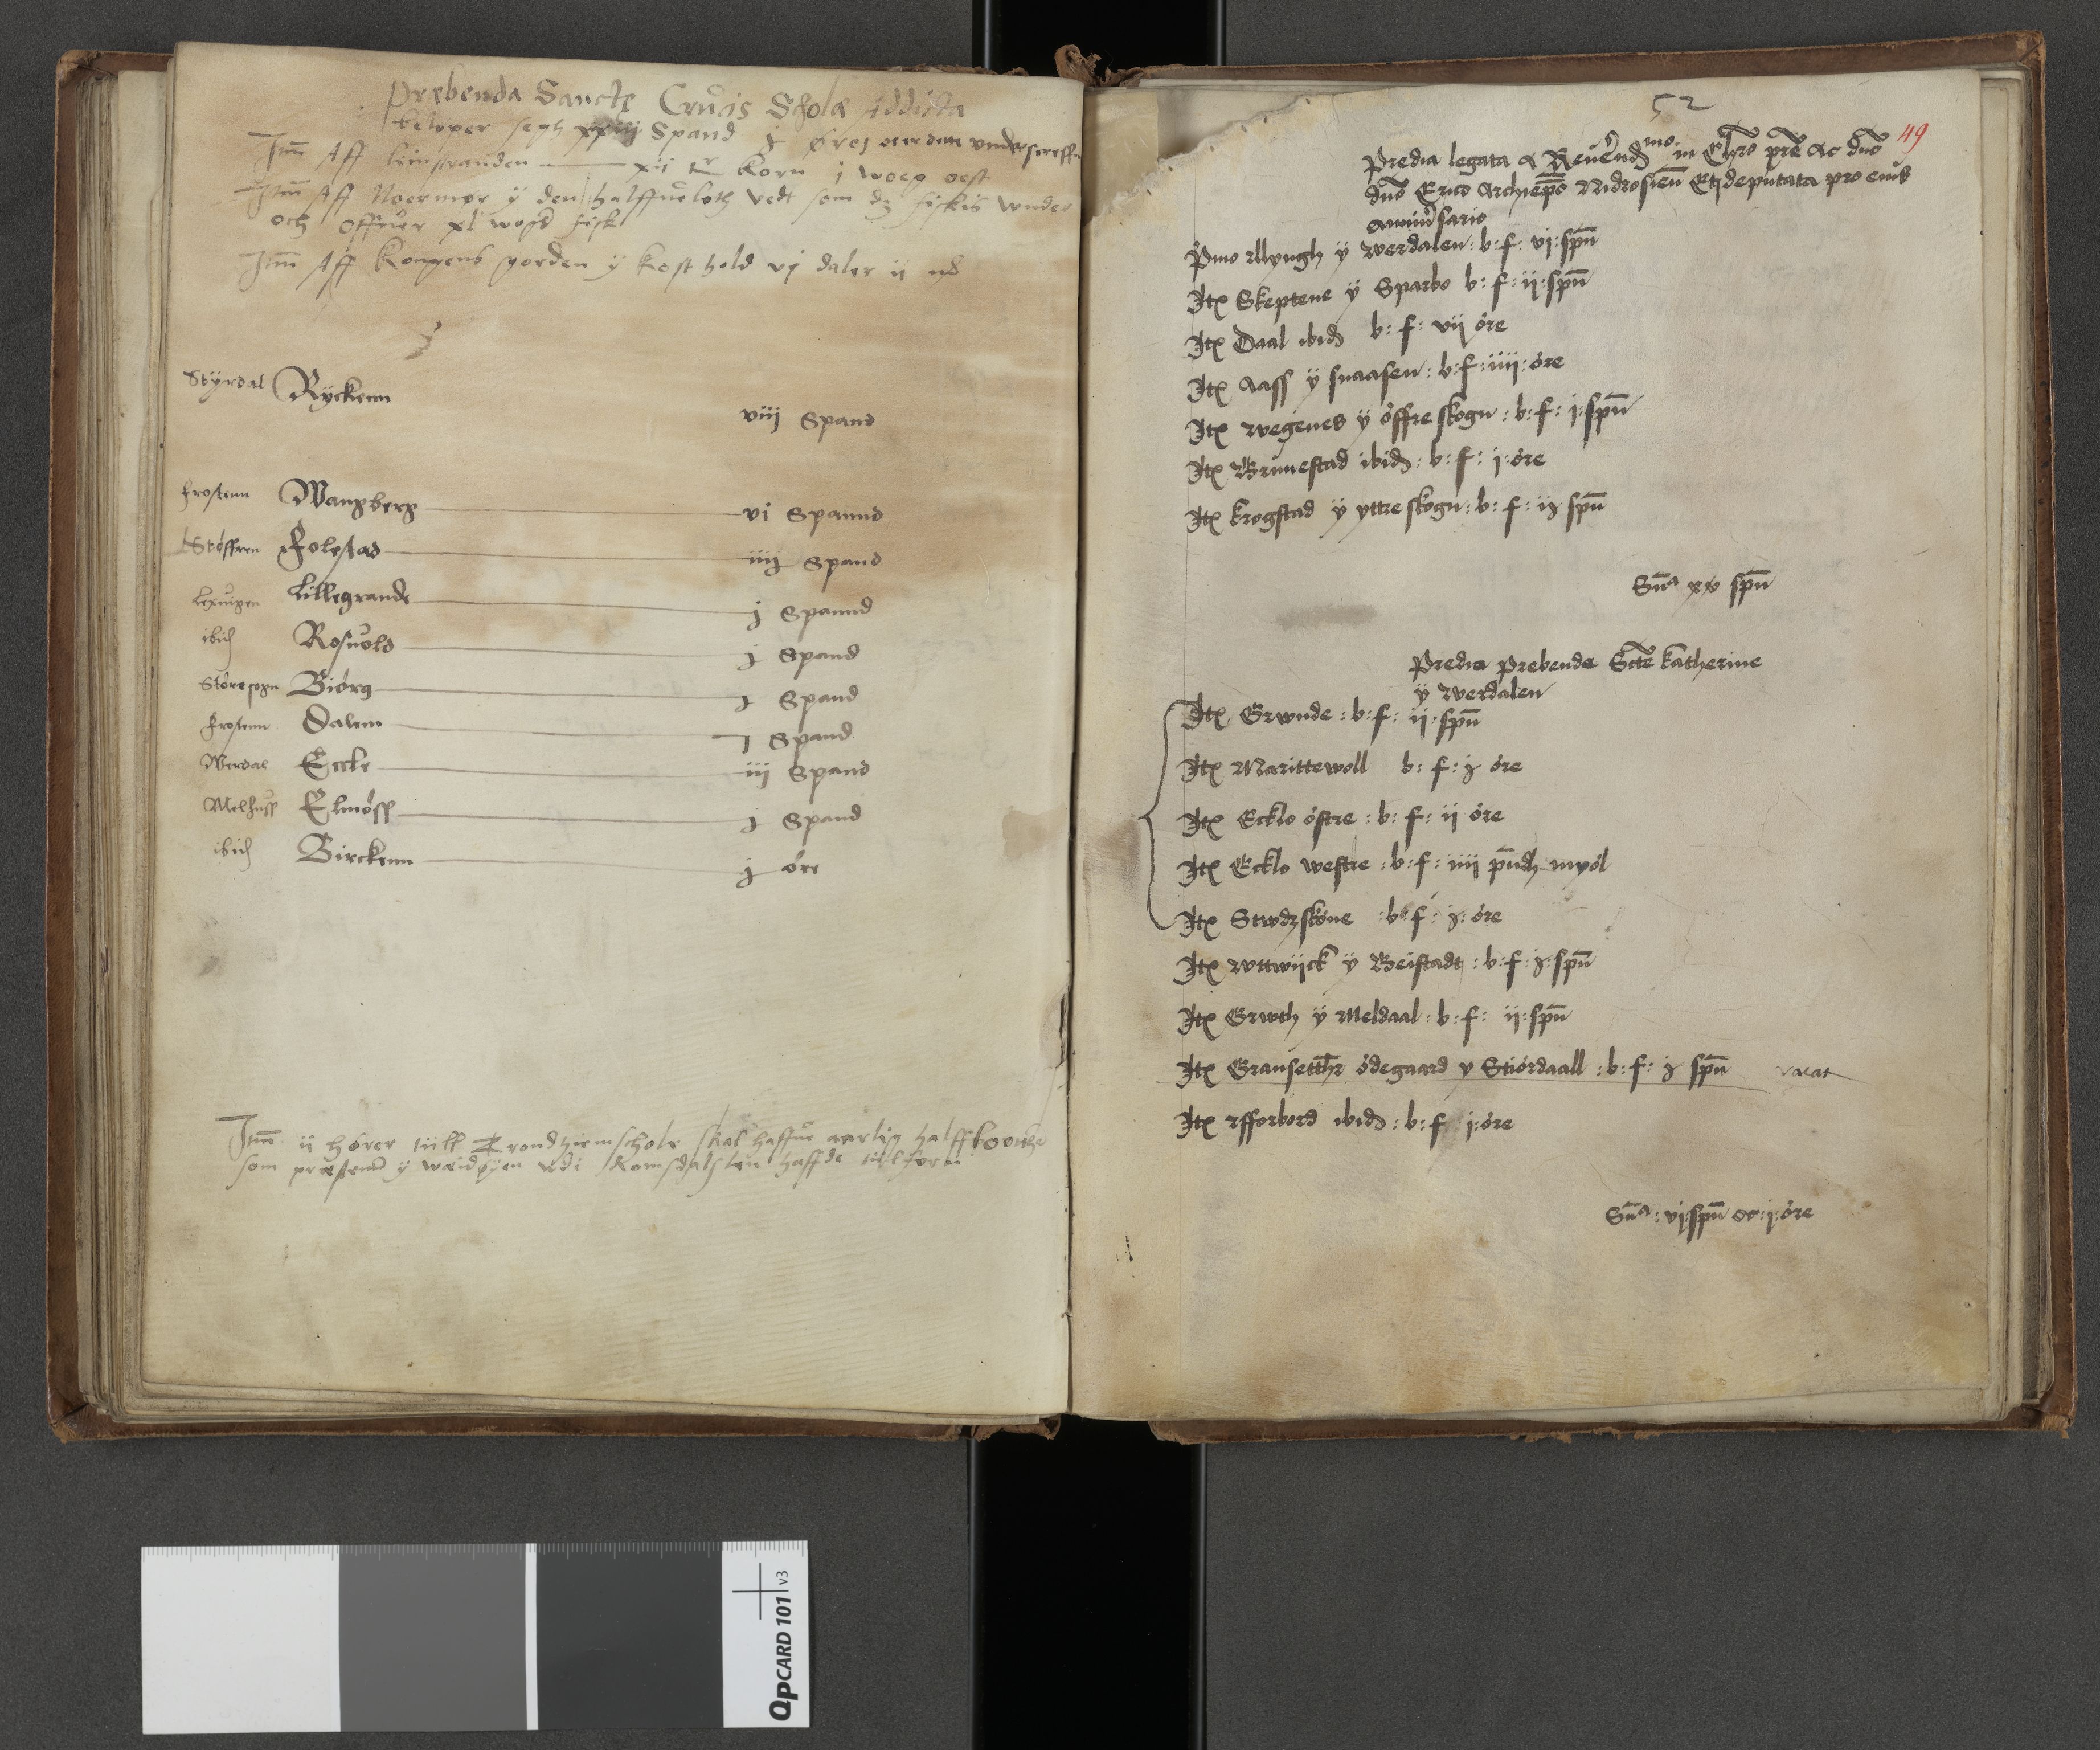 Præbenda Sancte Crucis Scholæ Addicta
beløper segh xxiiij Spand j øres och dem underscreffne
Itm Aff leinstranden xij Korn j woeg oest
Itm Aff Noermør ÿ den halffueloth vedt som dz fiskis wnder
och offuer xl woger fisk
Itm Aff Kongens gorden ÿ kost hold vj daler ij
Stÿrdal Rÿckenn viij Spand
frostenn Wangberg vi Spannd
Støffren Folestad iiij Spand
Lexuigen Lillegrande j Spannd
ibid Rosuold j Spand
Støresogn Biörg j Spand
frostenn Dalem j Spand
Werdal Eccle iij Spand
Melhuss Elmöss j Spand
ibid Birckenn j öre
Itm ij hörer till Trondhiem schole skal haffue aarlig halff
som præstend ÿ udi Romsdalslen haffde tilforn
52
49
Predia legata a Reuerendmo in Chro pre ac dno
dno Erico Archiepo Nidrosien Et deputata pro eius
aniuersario
Pmo Ulyngh ÿ Werdalen : b : f : vi : spn
Itz Skeptene ÿ Sparbo b : f : ij : spn
Itz Daal ibid b : f : vij öre
Itz Aass ÿ snaasen : b : f : iiij : öre
Itz Wegenes ÿ öffre skogn : b : f : j : spn
Itz Brunestad ibid : b : f : j : öre
Itz krogstad ÿ yttre skogn : b : f : spn
Sua xv spn
Predia prebende Scte Katherine
ÿ Werdalen
Itz Grwnde : b : f : ij : spn
Itz Marittewoll b : f : öre
Itz Ecklo östre : b : f : ij öre
Itz Ecklo westre : b : f : iiii pudh myöl
Itz Stwdzsköne : b : f : öre
Itz Wttwijck ÿ Beistadt : b : f : spn
Itz Grwth ÿ Meldaal : b : f : ij : spn
Itz Gransetthr ödegaard y Stiördaall : b : f : spn vacat
Itz Ufforbord ibid : b : f j : öre
Sua : vi : spn oc : j : öre
QpCARD 101 v3